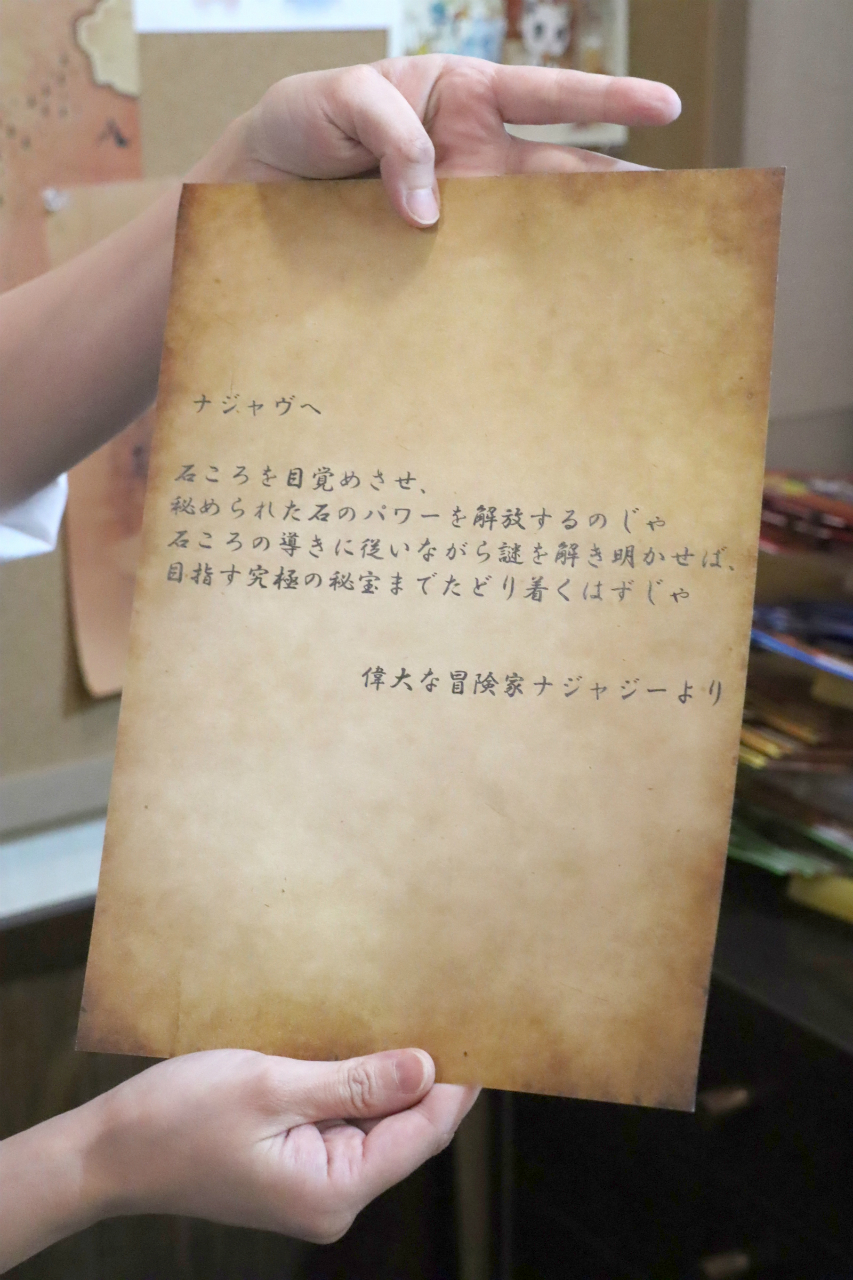 ナジャヴへ
石ころを目覚めさせ、
秘められた石のパワーを解放するのじゃ
石ころの導きに従いながら謎を解き明かせば、
目指す究極の秘宝までたどり着くはずじゃ
偉大な冒険家ナジャジーより